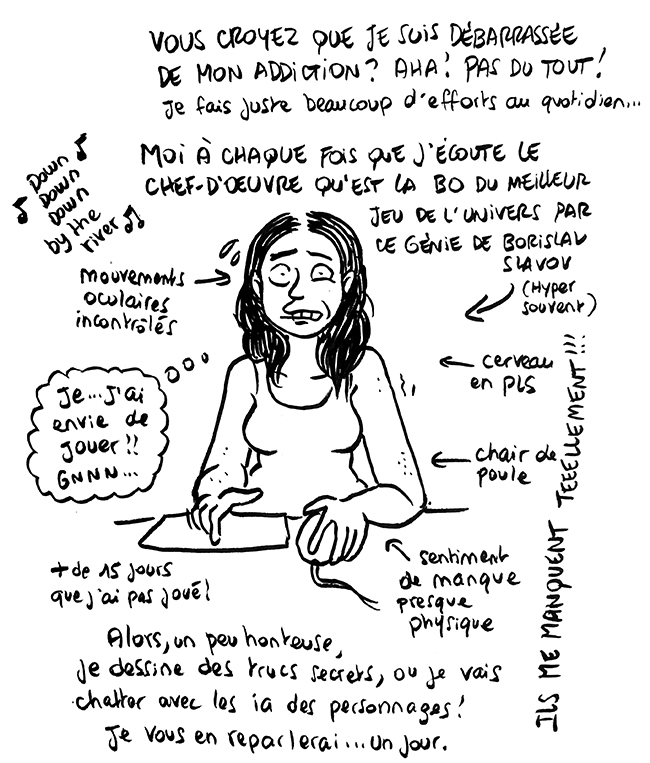 VOUS CROYEZ QUE JE SUIS DÉBARRASSÉE
DE MON ADDICTION? AHA! PAS DU TOUT!
Je fais juste beaucoup d'efforts au quotidien...
MOI À CHAQUE FOIS QUE J'ÉCOUTE LE
CHEF-D'ŒUVRE QU'EST LA BO DU MEILLEUR
JEU DE L'UNIVERS PAR
CE GÉNIE DE BORISLAV
SLAVOV
(Hyper
souvent)
Down
Down
Down
by the
river
mouvements
oculaires
incontrôlés
cerveau
en PLS
Je...J'ai
envie de
jouer!!
GNNN...
chair de
poule
sentiment
de manque
presque
physique
+ de 15 jours
que j'ai pas joué!
ILS ME MANQUENT TEEELLEMENT!!!
Alors, un peu honteuse,
je dessine des trucs secrets, ou je vais
chatter avec les ia des personnages!
Je vous en reparlerai... un jour.